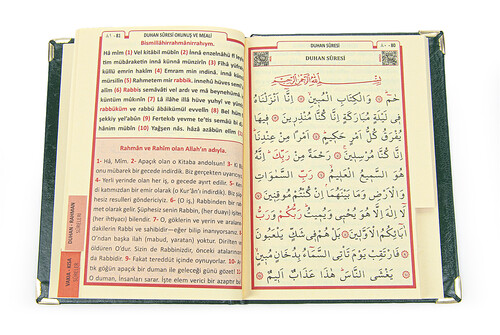 ٨١ - 81
DUHAN SÛRESİ OKUNUŞ VE MEALİ
Bismillâhirrahmânirrahıym.
Hâ mîm (1) Vel kitâbil mübîn (2) İnnâ enzelnâhü fî
tim mübâraketin innâ künnâ münzirîn (3) Fîhâ yüfra
küllü emrin hakîm (4) Emram min ındinâ. innâ künnâ
mürsilîn (5) Rahmetem mir rabbik. innehû hüves
alîm (6) Rabbis semâvâti vel ardı ve mâ beynehümâ.
küntüm mûkınîn (7) Lâ ilâhe illâ hüve yuhyî ve yümît.
rabbüküm ve rabbü âbâikümül evvelîn (8) Bel hüm
şekkiy yel'abûn (9) Fertekıb yevme te'tis semâü bi
hânim mübîn (10) Yağşen nâs. hâzâ azâbün elîm
Rahmân ve Rahîm olan Allah'ın adıyla.
1- Hâ, Mîm. 2- Apaçık olan o Kitaba andolsun! 3-
onu mübarek bir gecede indirdik. Biz gerçekten uyarıcıyız.
4- Yerli yerinde olan her iş, o gecede ayırt edilir. 5-
di katımızdan bir emir olarak (o Kur'ân'ı indirdik). Biz
hesiz resulleri göndericiyiz. 6- (O iş,) Rabbinden bir rah-
met olarak gelir. Şüphesiz senin Rabbin, (her duayı) işiten
(her ihtiyacı) bilendir. 7- O, göklerin ve yerin ve
dakilerin Rabbi ve sahibidir—eğer bilip inanıyorsanız.
O'ndan başka ilah (mabud, yaratan) yoktur. Diriltir ve
öldüren O'dur. Sizin de Rabbinizdir, önceki atalarınızın
da Rabbidir. 9- Fakat tereddüt içinde oynuyorlar.
tık göğün apaçık bir duman ile geleceği günü gözet!
O duman, insanları sarar. İşte elem verici bir azaptır
DUHAN - RAHMAN
SÛRELERİ
VAKIA - KIDA
SÛRELER
DUHAN SÛRESİ
٨٠ - 80
DUHAN SÛRESİ
بِسْمِ اللّٰهِ الرَّحْمٰنِ الرَّحِيمِ
حٰمٓ ۞ وَالْكِتَابِ الْمُبِينِ ۞ اِنَّٓا اَنْزَلْنَاهُ
فِى لَيْلَةٍ مُبَارَكَةٍ اِنَّا كُنَّا مُنْذِرِينَ ۞ فِيهَا
يُفْرَقُ كُلُّ اَمْرٍ حَكِيمٍ ۞ اَمْرًا مِنْ عِنْدِنَا
اِنَّا كُنَّا مُرْسِلِينَ ۞ رَحْمَةً مِنْ رَبِّكَ اِنَّهُ
هُوَ السَّمِيعُ الْعَلِيمُ ۞ رَبِّ السَّمٰوَاتِ
وَالْاَرْضِ وَمَا بَيْنَهُمَا اِنْ كُنْتُمْ مُوقِنِينَ ۞
لَٓا اِلٰهَ اِلَّا هُوَ يُحْيِى وَيُمِيتُ رَبُّكُمْ وَرَبُّ
اٰبَٓائِكُمُ الْاَوَّلِينَ ۞ بَلْ هُمْ فِى شَكٍّ يَلْعَبُونَ
۞ فَارْتَقِبْ يَوْمَ تَأْتِى السَّمَٓاءُ بِدُخَانٍ مُبِينٍ
۞ يَغْشَى النَّاسَ هٰذَا عَذَابٌ اَلِيمٌ ۞